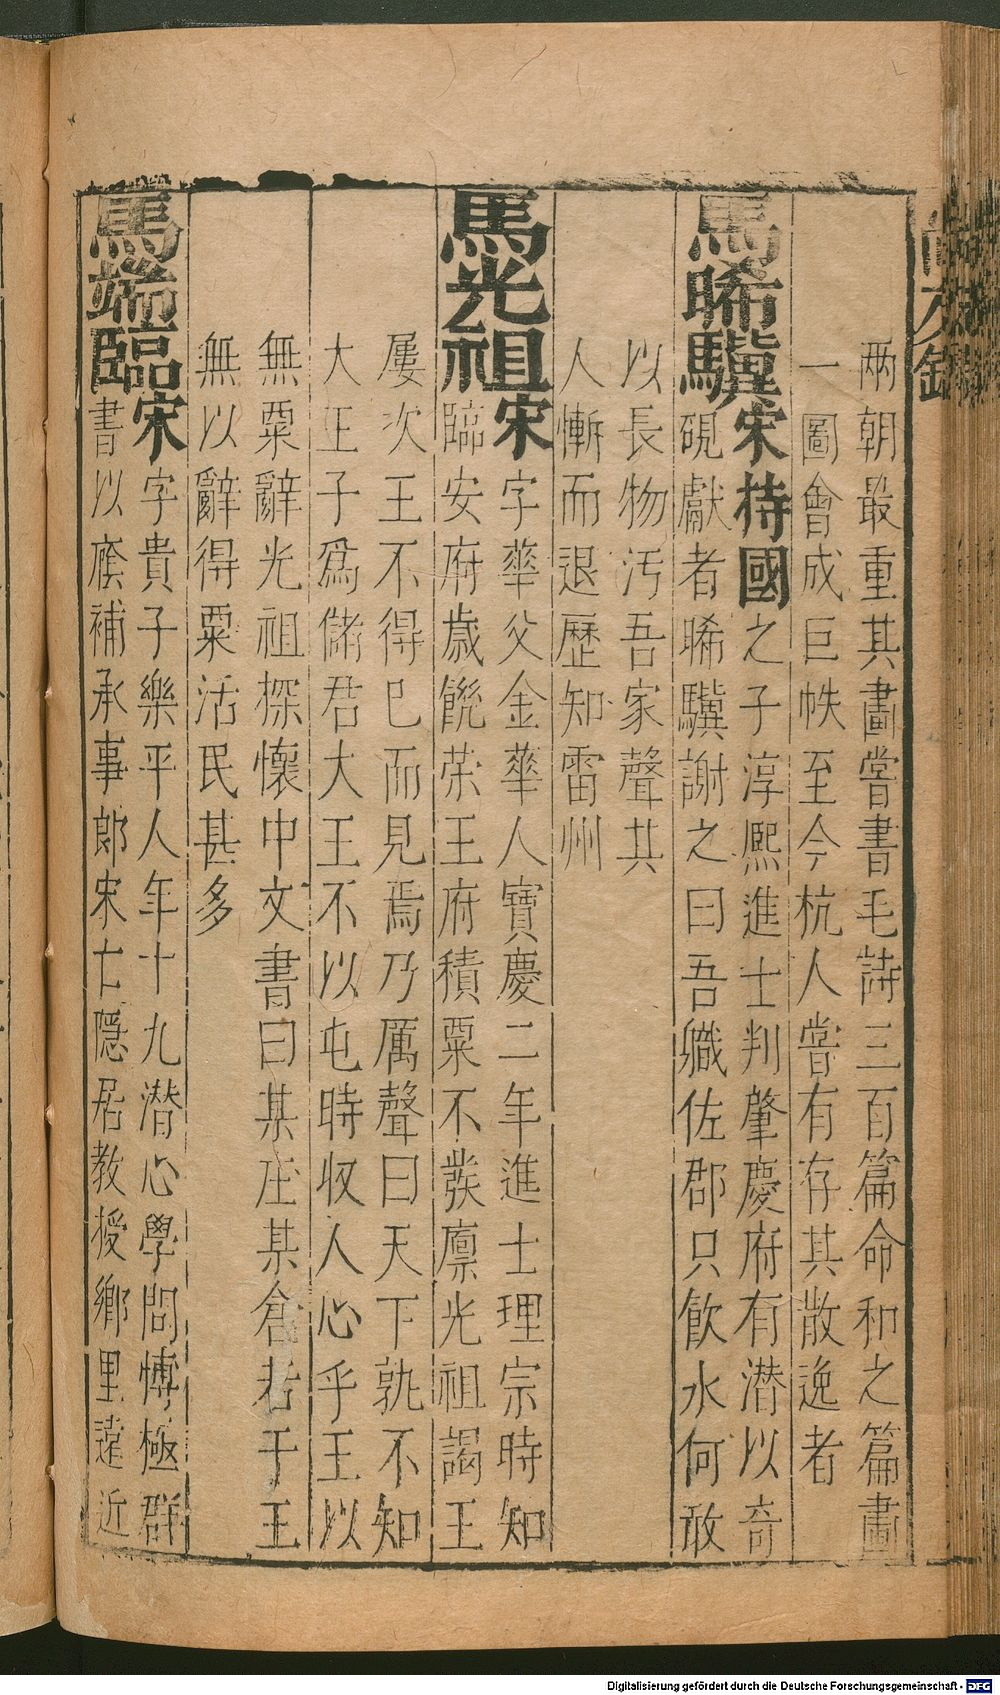 兩朝最重其畫嘗書毛詩三百篇命和之篇畫
一圖會成巨帙至今杭人嘗有存其散逸者
馬晞驥宋持國之子淳熈進士判肇慶府有潜以竒
硯獻者晞驥謝之曰吾職佐郡只飲水何敢
以長物汚吾家聲其
人慚而退歷知雷州
馬光祖宋字華父金華人寶慶二年進士理宗時知
臨安府歲饑荣王府積粟不發廪光祖謁王
屢次王不得已而見焉乃厲聲曰天下孰不知
大王子爲儲君大王不以此時収人心乎王以
無粟辭光祖探懷中文書曰某庄某倉若干王
無以辭得粟活民甚多
馬端臨宋字貴子樂平人年十九潜心學問慱極群
書以廕補承事郎宋亡隱居教授鄉里遠近
Digitalisierung gefördert durch die Deutsche Forschungsgemeinschaft - DFG